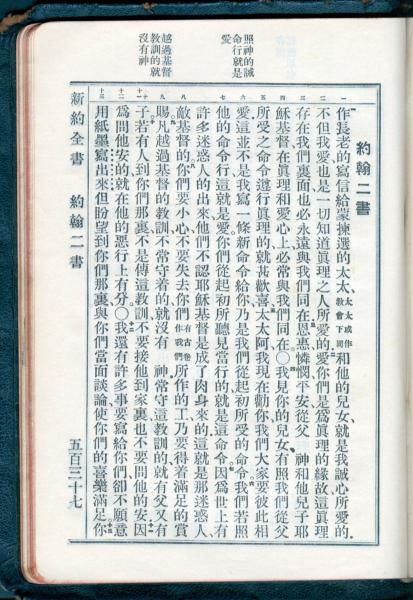 照神的誡
命行就是
愛
越過基督
教訓的就
沒有神
約翰二書
作長老的寫信給蒙揀選的太太、太太或作教會下同和他的兒女、就是我誠心所愛的.
不但我愛也是一切知道眞理之人所愛的愛你們是爲眞理的緣故這眞理
存在我們裏面也必永遠與我們同在恩惠憐憫平安從父　神和他兒子耶
穌基督在眞理和愛心上必常與我們同在〇我見你的兒女有照我們從父
所受之命令遵行眞理的就甚歡喜太太阿我現在勸你我們大家要彼此相
愛這並不是我寫一條新命令給你乃是我們從起初所受的命令我們若照
他的命令行這就是愛你們從起初所聽見當行的就是這命令因爲世上有
許多迷惑人的出來他們不認耶穌基督是成了肉身來的這就是那迷惑人
敵基督的你們要小心不要失去你們有古卷作我們所作的工乃要得着滿足的賞
賜凡越過基督的教訓不常守着的就沒有　神常守這教訓的就有父又有
子若有人到你們那裏不是傳這教訓不要接他到家裏也不要問他的安因
爲問他安的就在他的惡行上有分〇我還有許多事要寫給你們卻不願意
用紙墨寫出來但盼望到你們那裏與你們當面談論使你們的喜樂滿足你
新約全書　約翰二書　五百三十七